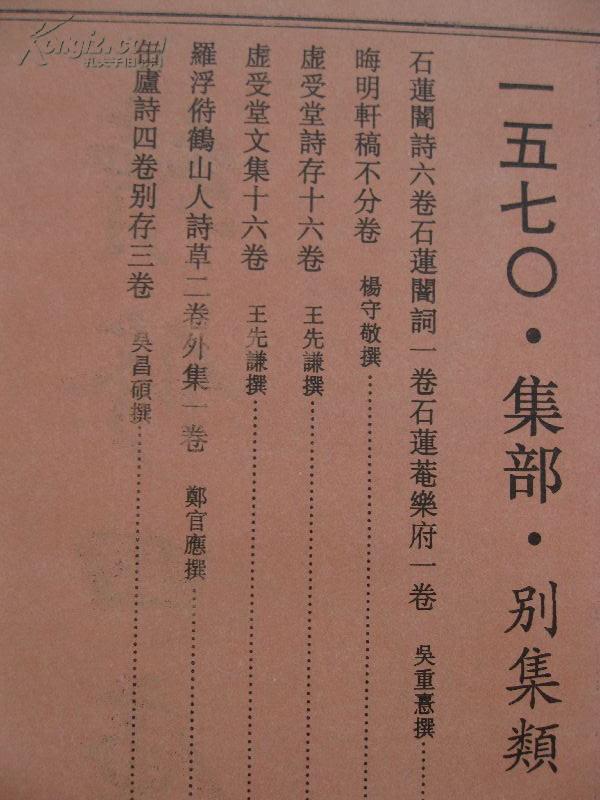 一五七〇・集部・別集類
石蓮闇詩六卷石蓮闇詞一卷石蓮菴樂府一卷 吳重憙撰
晦明軒稿不分卷 楊守敬撰
虛受堂詩存十六卷 王先謙撰
虛受堂文集十六卷 王先謙撰
羅浮偫鶴山人詩草二卷外集一卷 鄭官應撰
缶廬詩四卷別存三卷 吳昌碩撰
Kongfz.com
孔夫子旧书网